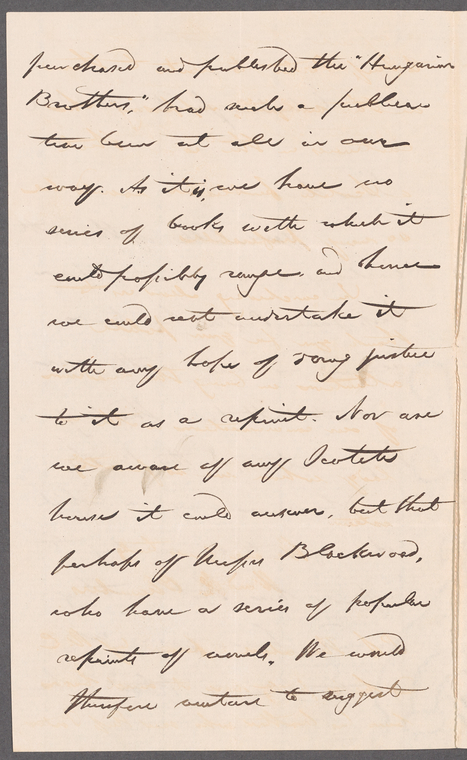 purchased and published the "Hungarian
Brothers," had such a publica
tion been at all in our
way. As it is, we have no
series of books with which it
could possibly range, and hence
we could not undertake it
with any hope of doing justice
to it as a reprint. Nor are
we aware of any Scotch
house it could answer, but that
perhaps of Messrs Blackwood,
who have a series of popular
reprints of novels. We would
therefore venture to suggest